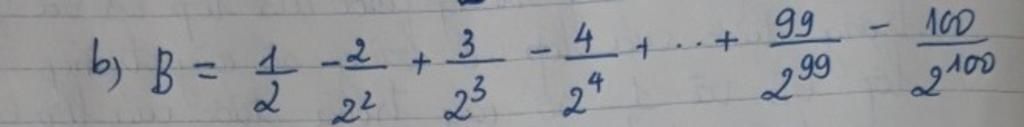 b) B = 1/2 - 2/2² + 3/2³ - 4/2⁴ + ... + 99/2⁹⁹ - 100/2¹⁰⁰